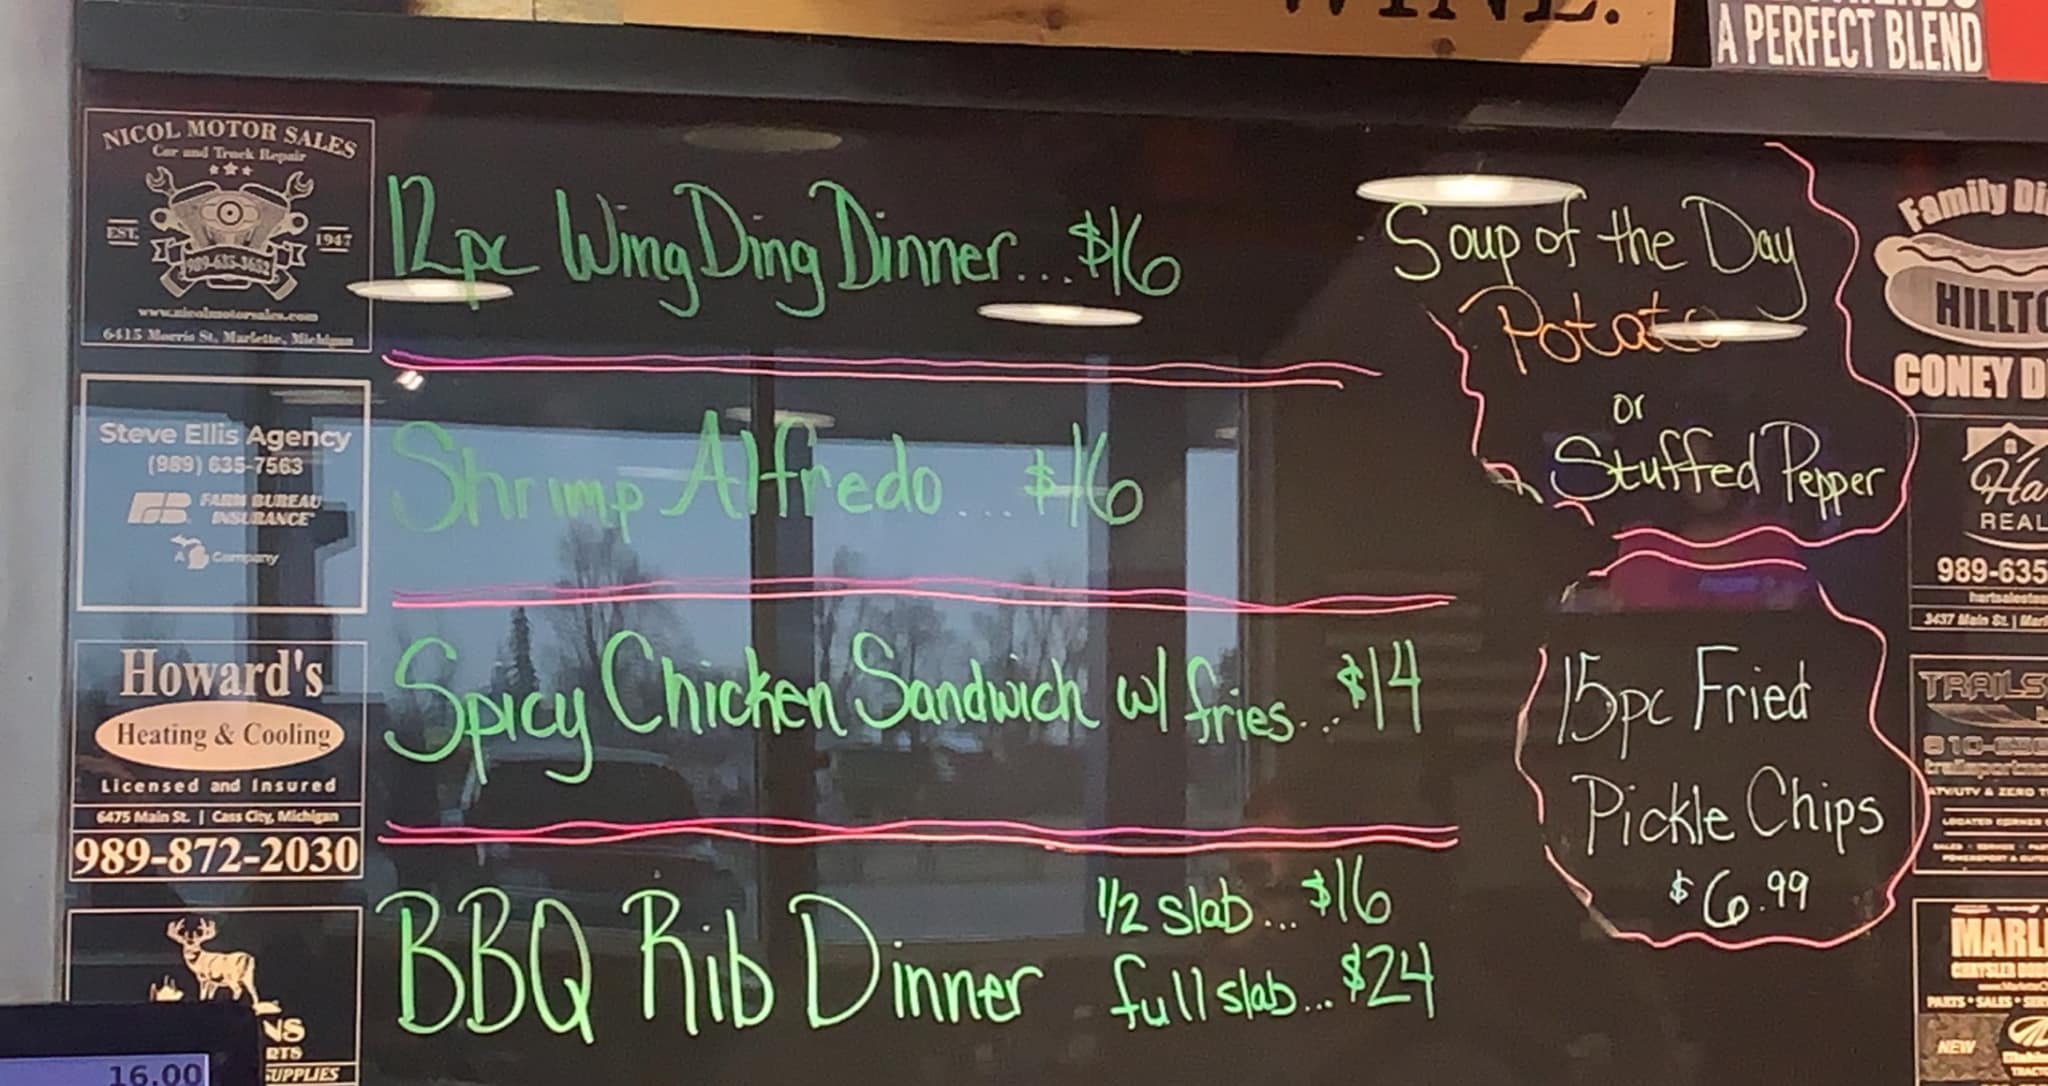 WINE.
A PERFECT BLEND
NICOL MOTOR SALES
Car and Truck Repair
EST. 1947
989-635-3652
www.nicolmotorsales.com
6415 Morris St. Marlette, Michigan
Steve Ellis Agency
(989) 635-7563
FARM BUREAU
INSURANCE
A Company
Howard's
Heating & Cooling
Licensed and Insured
6475 Main St. | Cass City, Michigan
989-872-2030
NS
RTS
SUPPLIES
16.00
12pc Wing Ding Dinner...$16
Shrimp Alfredo....$16
Spicy Chicken Sandwich w/ fries...$14
BBQ Rib Dinner
1/2 slab...$16
full slab...$24
Soup of the Day
Potato
or
Stuffed Pepper
15pc Fried
Pickle Chips
$6.99
Family Di
HILLTO
CONEY D
Ha
REAL
989-635
3437 Main St. | Marl
TRAILS
MARL
CHRYSLER DOD
PARTS * SALES * SER
NEW